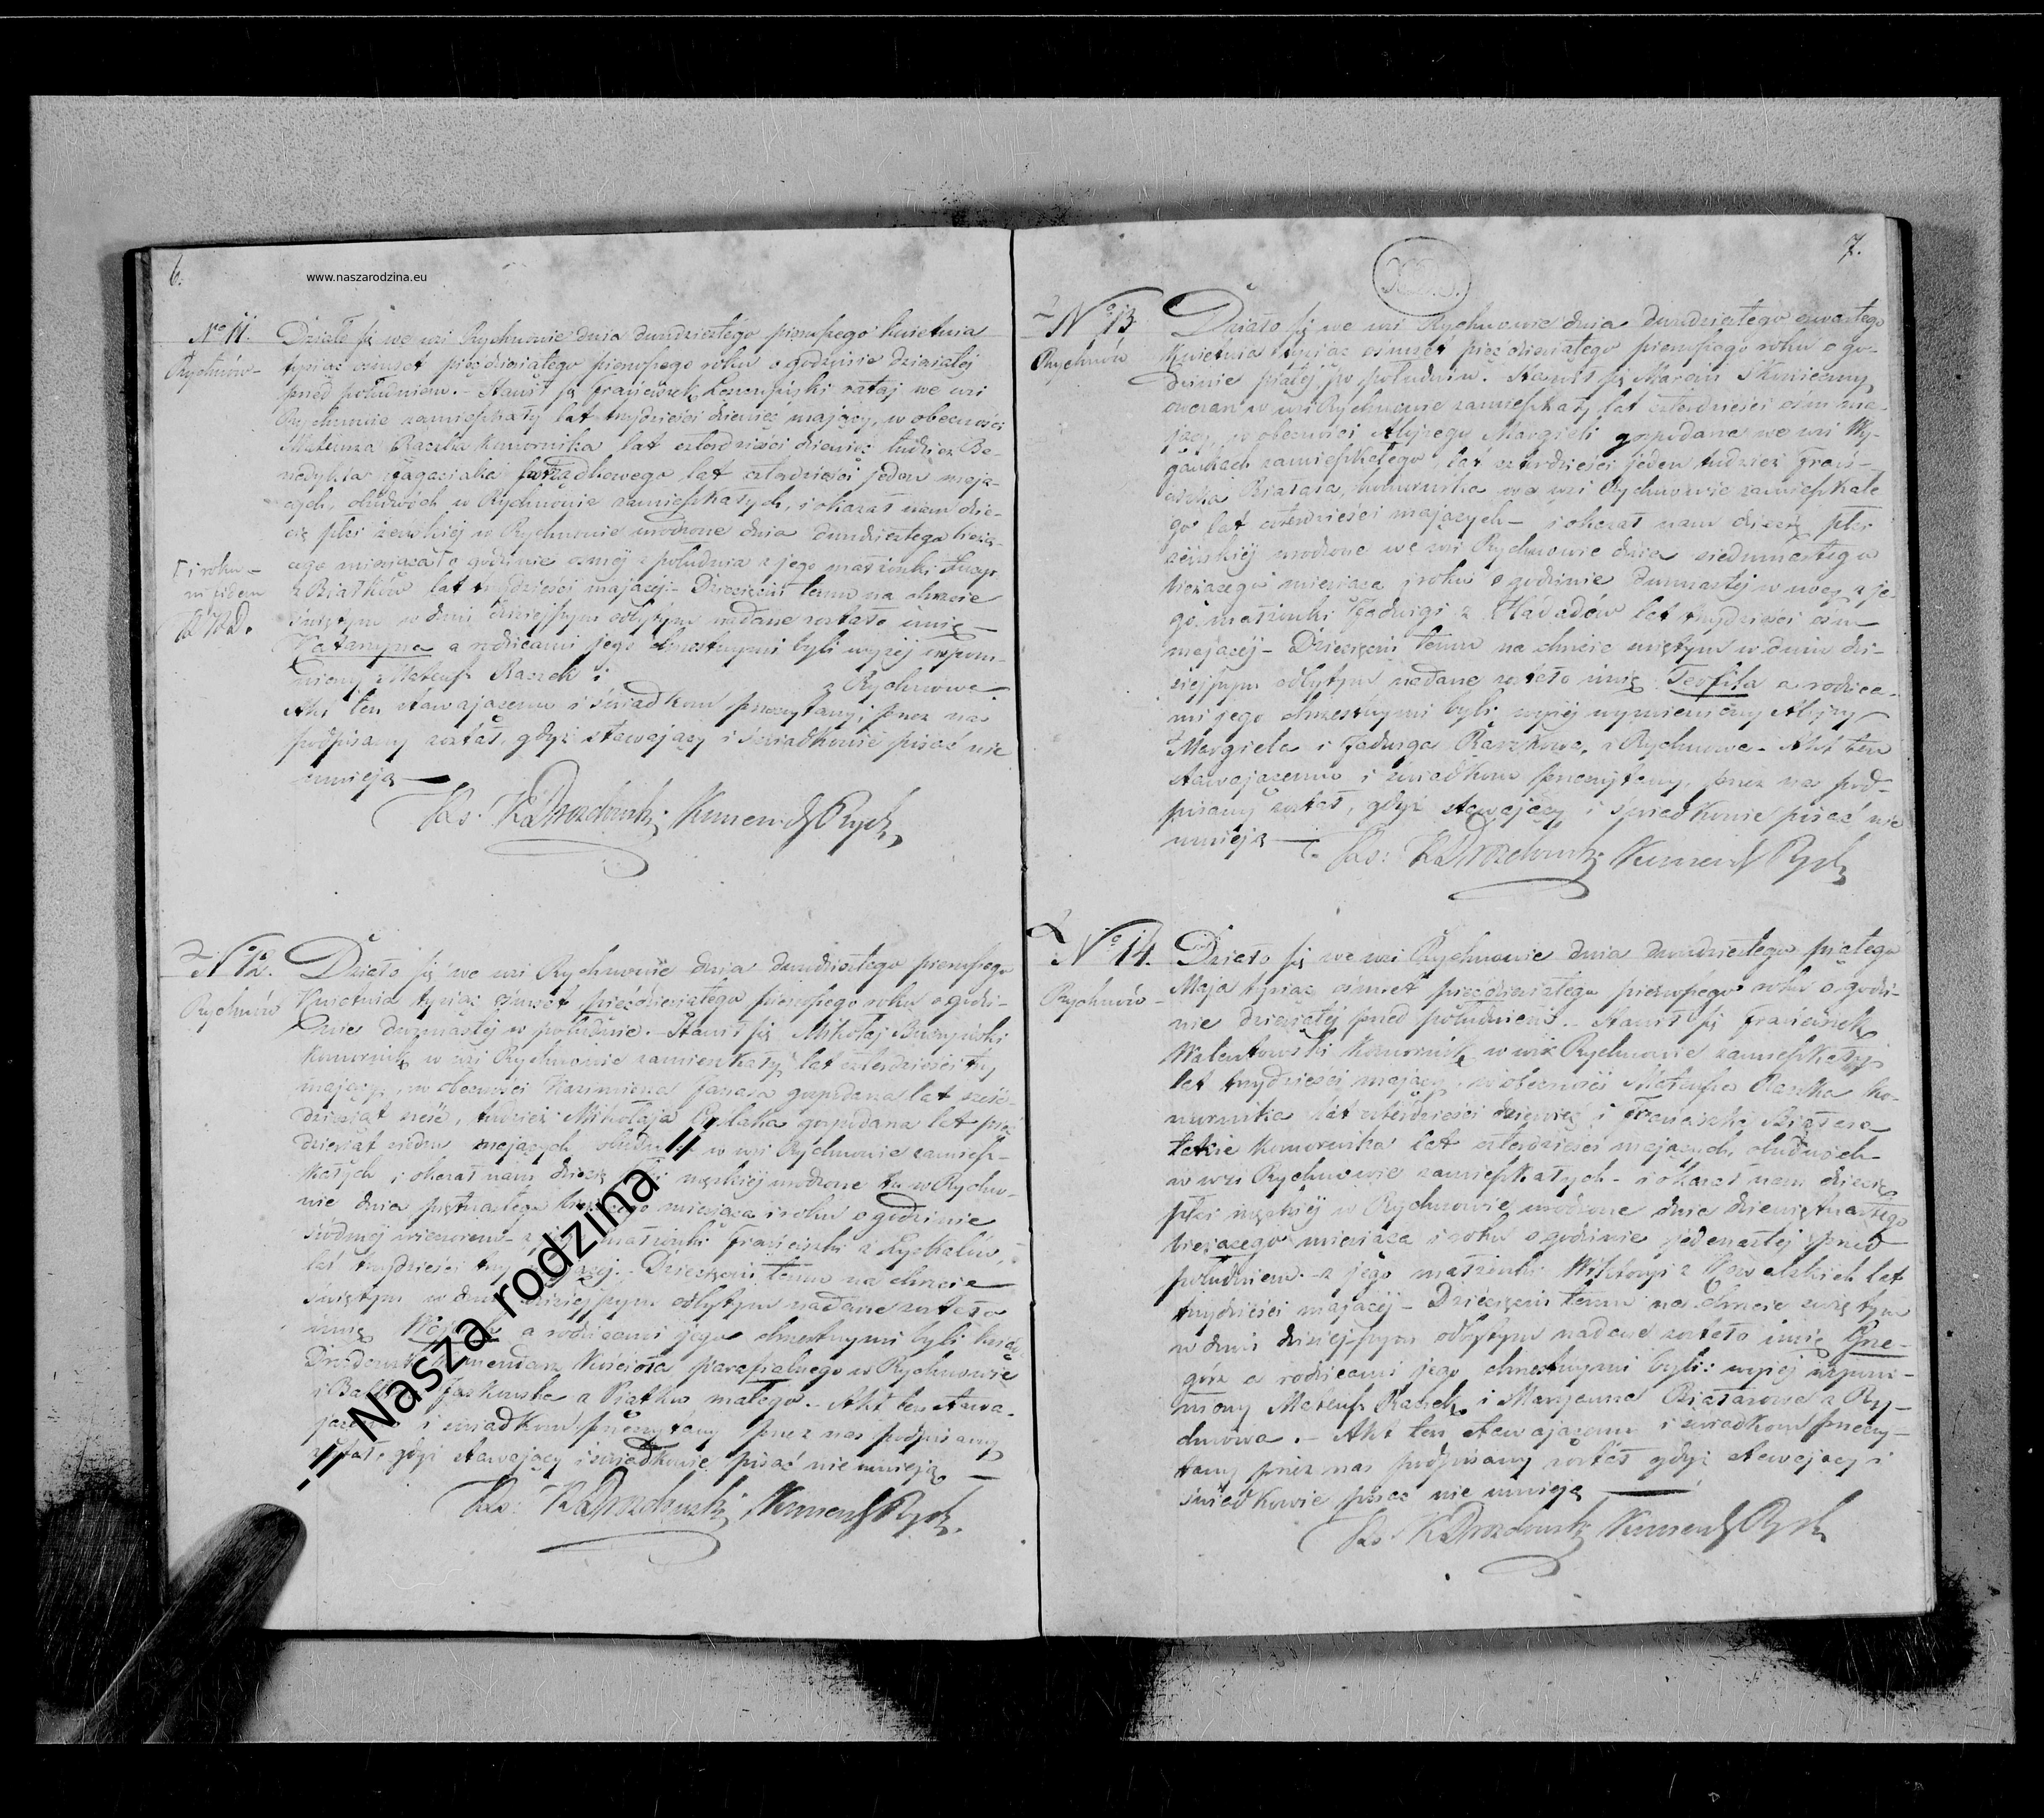 6.
www.naszarodzina.eu
No 11.
Rychnów
Działo się we wsi Rychnowie dnia dwudziestego pierwszego kwietnia
tysiąc ośmset pięćdziesiątego pierwszego roku o godzinie dziesiątej
przed południem. Stawił się Franciszek rataj we wsi
Rychnowie zamieszkały lat trzydzieści dziewięć mający, w obecności
Mateusza Raczka komornika lat czterdzieści dziewięć tudzież Be-
nedykta lat czterdzieści jeden mają-
cych, obudwóch w Rychnowie zamieszkałych, i okazał nam dzie-
cię płci żeńskiej w Rychnowie urodzone dnia dwudziestego bieżą-
cego miesiąca o godzinie ósmej z południa z jego małżonki Łucyi
z Białków lat trzydzieści mającej. Dziecięciu temu na chrzcie
świętym w dniu dzisiejszym odbytym nadane zostało imię
Katarzyna a rodzicami jego chrzestnymi byli wyżej wspom-
niony Mateusz Raczek i z Rychnowa
Akt ten stawającemu i świadkom przeczytany, przez nas
podpisany został, gdyż stawający i świadkowie pisać nie
umieją
i roku
Xs. K Drozdowski Komend Rych
No 12.
Rychnów
Działo się we wsi Rychnowie dnia dwudziestego pierwszego
Kwietnia tysiąc ośmset pięćdziesiątego pierwszego roku o godzi-
nie dwunastej w południe. Stawił się Mikołaj
komornik w wsi Rychnowie zamieszkały lat czterdzieści trzy
mający, w obecności Kazimierza gospodarza lat sześć-
dziesiąt sześć, tudzież Mikołaja gospodarza lat pięć
dziesiąt mających w wsi Rychnowie zamiesz-
kałych i okazał nam dziecię męskiej urodzone tu w Rychno-
wie dnia piętnastego miesiąca i roku o godzinie
siódmej wieczorem z małżonki Franciszki z
lat trzydzieści trzy Dziecięciu temu na chrzcie
świętym w dniu dzisiejszym odbytym nadane zostało
imię a rodzicami jego chrzestnymi byli
Komendarz Kościoła parafialnego w Rychnowie
i Jaskowska z Piątku małego. Akt ten stawa-
i świadkom przeczytany przez nas podpisany
gdyż stawający i świadkowie pisać nie umieją
Xs. K Drozdowski Komend Rych.
-= Nasza rodzina =-
7.
No 13
Rychnów
Działo się we wsi Rychnowie dnia dwudziestego czwartego
Kwietnia tysiąc ośmset pięćdziesiątego pierwszego roku o go-
dzinie piątej po południu. Stawił się Marcin Skowieczny
owczarz w wsi Rychnowie zamieszkały lat czterdzieści ośm ma-
jący, w obecności Alojzego Margieli gospodarza we wsi
zamieszkałego, lat czterdzieści jeden tudzież Fran-
ciszka Białasa, komornika we wsi Rychnowie zamieszkałe
go lat czterdzieści mających i okazał nam dziecię płci
żeńskiej urodzone we wsi Rychnowie dnia siedmnastego
bieżącego miesiąca i roku o godzinie dwunastej w nocy z je-
go małżonki Jadwigi z lat trzydzieści ośm
mającej Dziecięciu temu na chrzcie świętym w dniu dzi-
siejszym odbytym nadane zostało imię Teofila a rodzica-
mi jego chrzestnymi byli wyżej wymieniony Alojzy
Margiela i Jadwiga Raczkowa, z Rychnowa. Akt ten
stawającemu i świadkom przeczytany, przez nas pod-
pisany został, gdyż stawający i świadkowie pisać nie
umieją
Xs: K Drozdowski Komend Rych
No 14.
Rychnów
Działo się we wsi Rychnowie dnia dwudziestego piątego
Maja tysiąc ośmset pięćdziesiątego pierwszego roku o godzi-
nie dziesiątej przed południem. Stawił się Franciszek
Walentowski komornik w wsi Rychnowie zamieszkały
lat trzydzieści mający, w obecności Mateusza Raczka ko-
mornika lat czterdzieści dziewięć i Franciszka Białasa
także komornika lat czterdzieści mających, obudwóch
w wsi Rychnowie zamieszkałych i okazał nam dziecię
płci męskiej w Rychnowie urodzone dnia dziewiętnastego
bieżącego miesiąca i roku o godzinie jedenastej przed
południem z jego małżonki Wiktoryi z Kowalskich lat
trzydzieści mającej Dziecięciu temu na chrzcie świętym
w dniu dzisiejszym odbytym nadane zostało imię Grze-
górz a rodzicami jego chrzestnymi byli: wyżej wspom-
niony Mateusz Raczek i Maryanna Białasowa z Ry-
chnowa. Akt ten stawającemu i świadkom przeczy-
tany przez nas podpisany został gdyż stawający i
świadkowie pisać nie umieją
Xs K Drozdowski Komend Rych